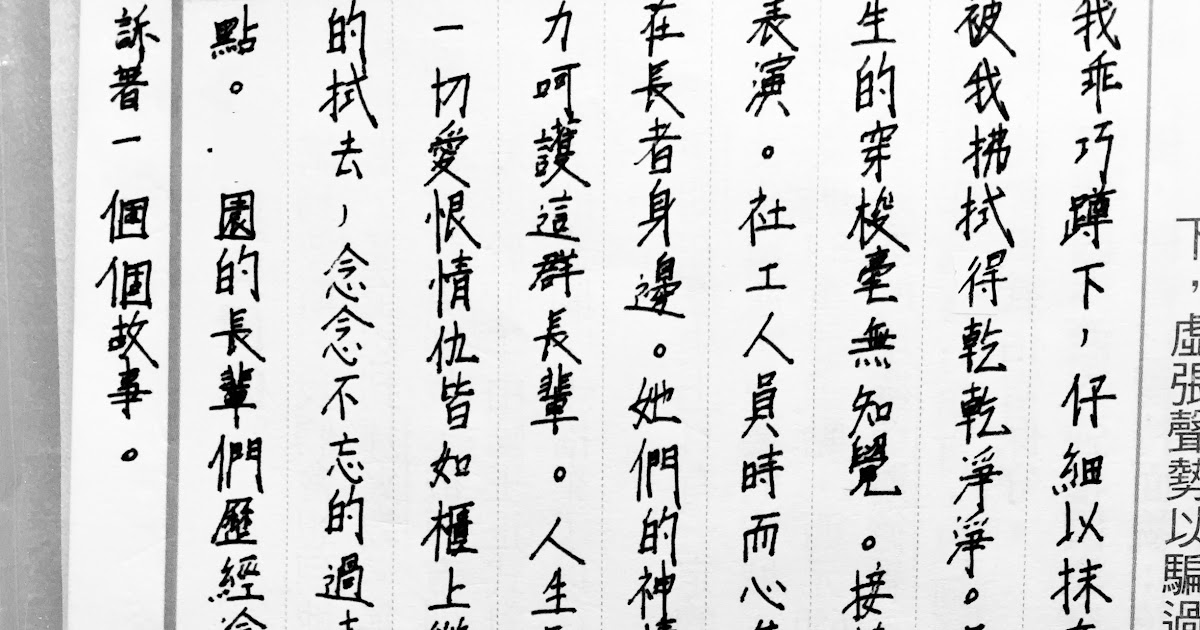 下，虛張聲勢以騙過
我乖巧蹲下，仔細以抹
被我拂拭得乾乾淨淨。
生的穿梭毫無知覺。接
表演。社工人員時而心
在長者身邊。她們的神情
力呵護這群長輩。人生
一切愛恨情仇皆如櫃上
的拭去，念念不忘的過去
點。園的長輩們歷經
訴著一個個故事。